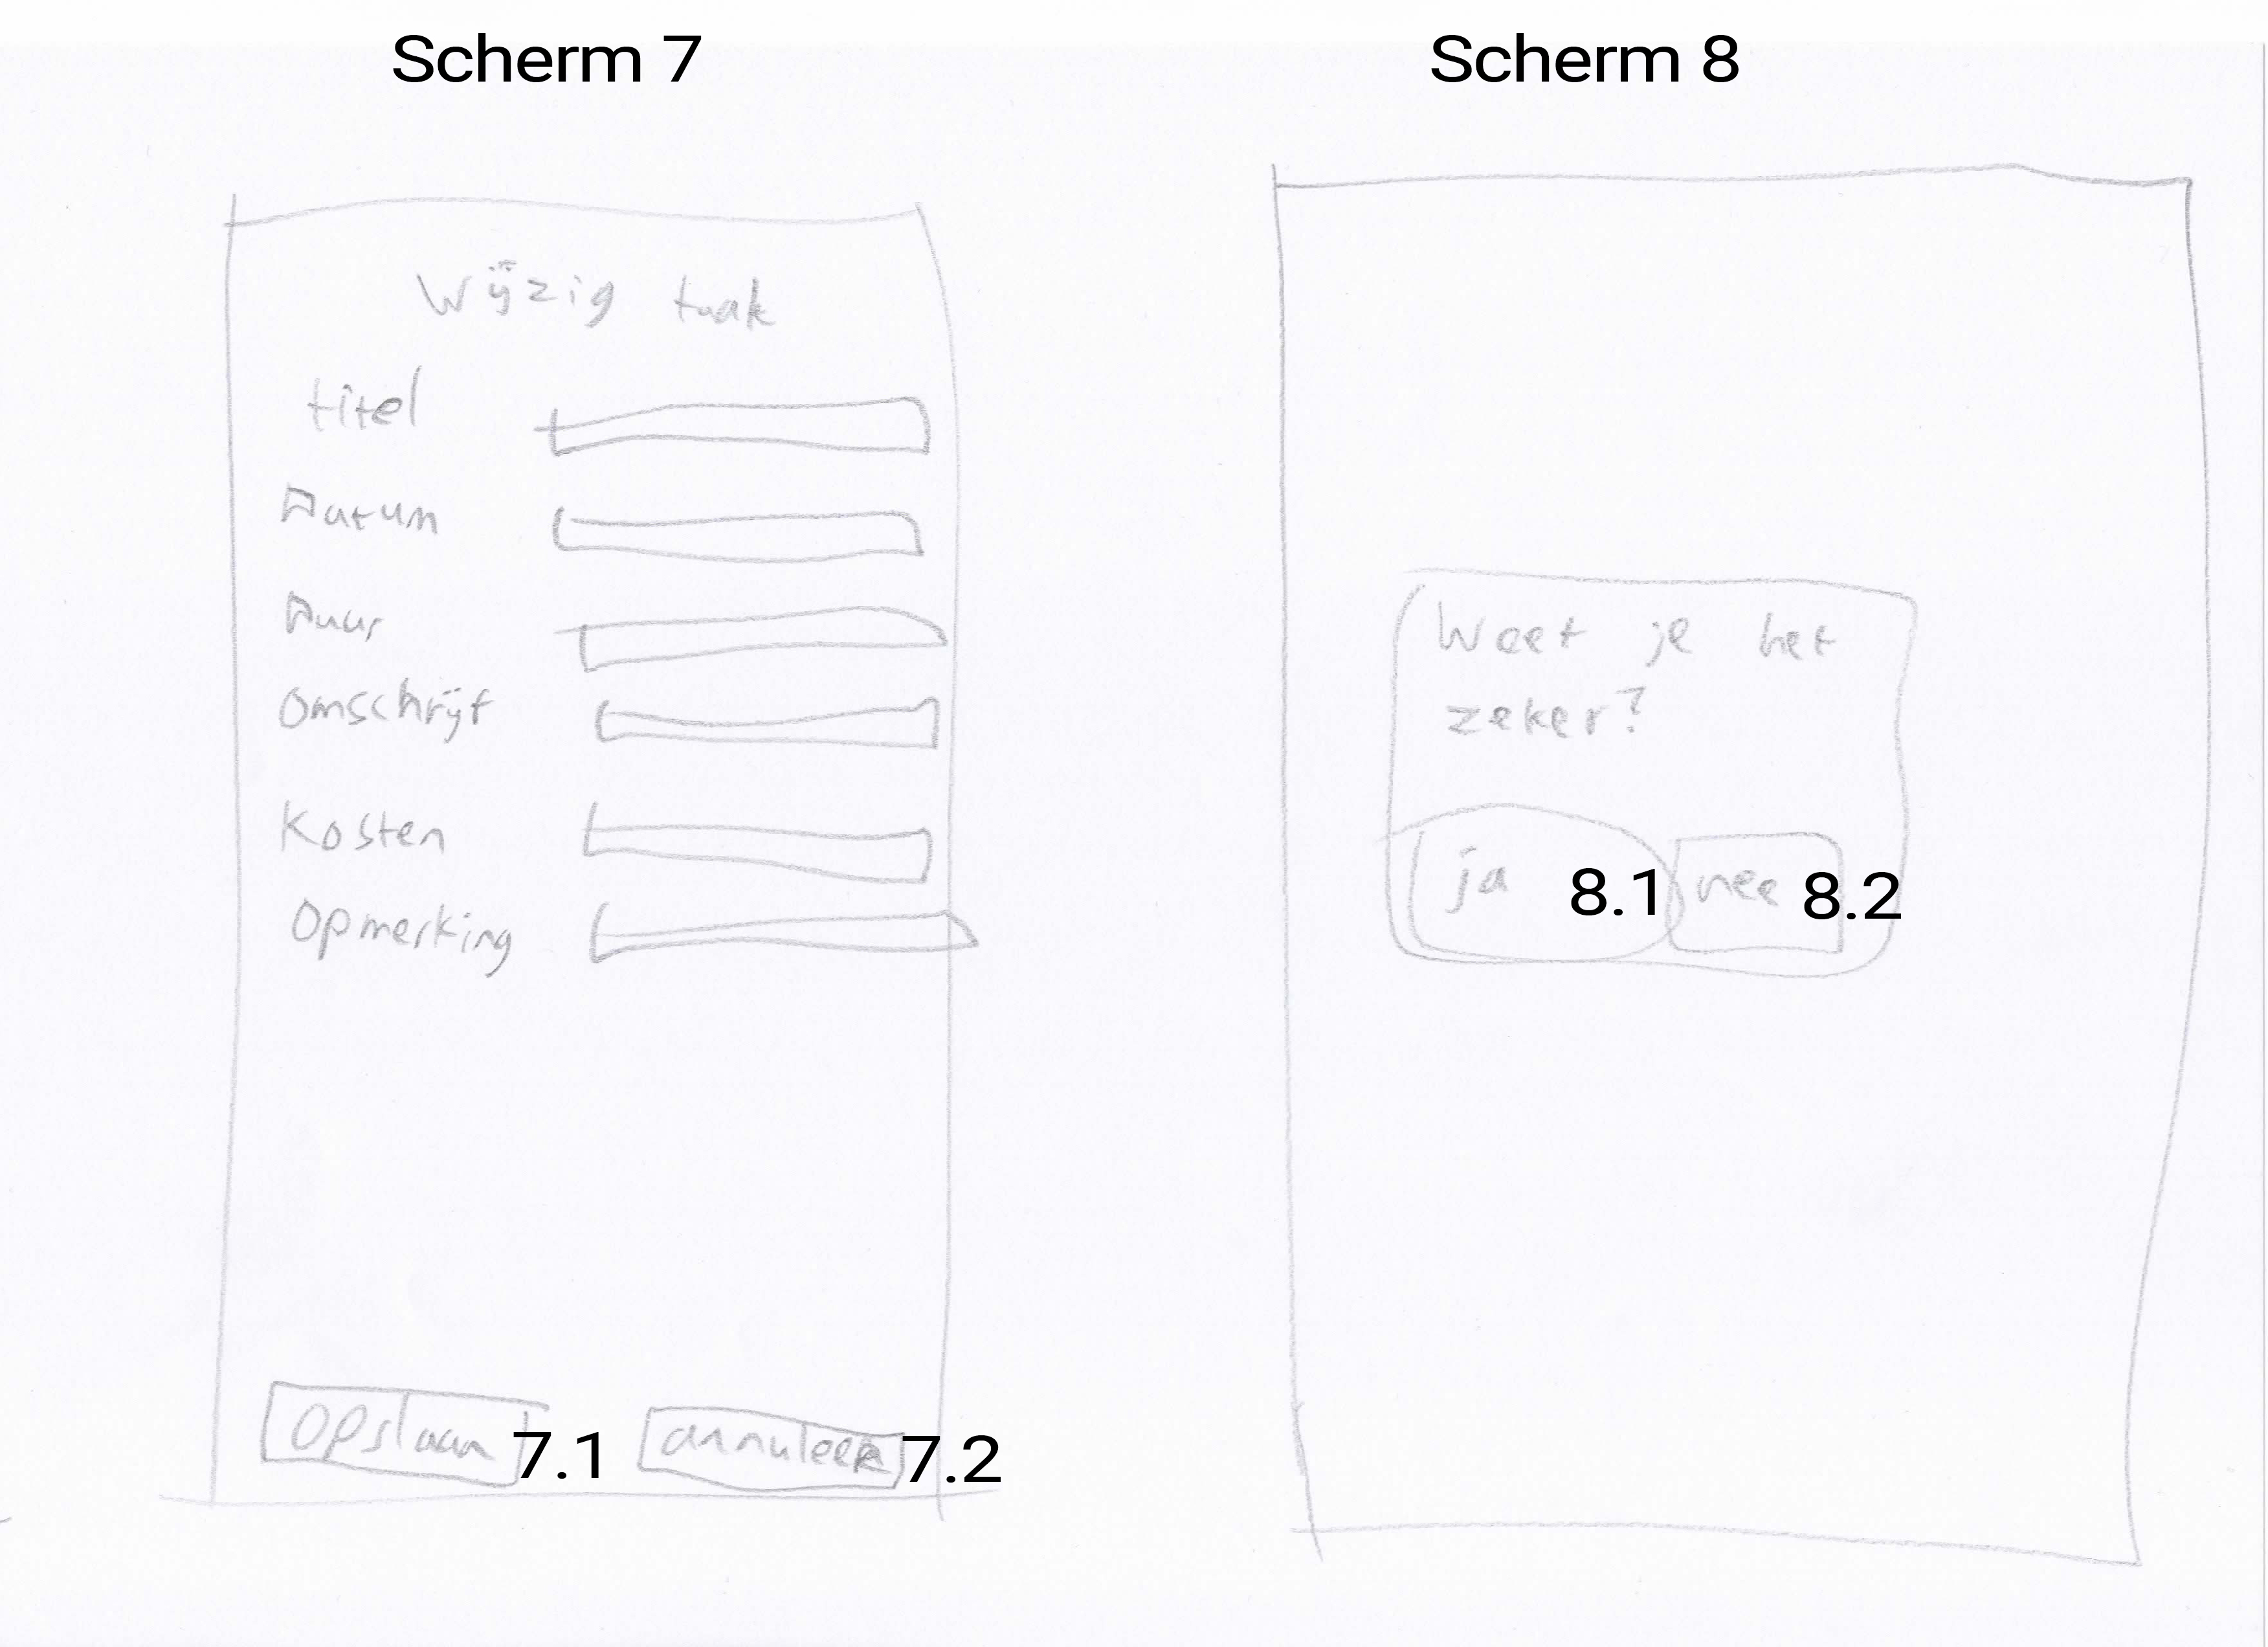 Scherm 7
Wijzig taak
titel
Datum
Duur
Omschrijf
Kosten
Opmerking
Opslaan 7.1 annuleer 7.2
Scherm 8
Weet je het
zeker?
ja 8.1 nee 8.2